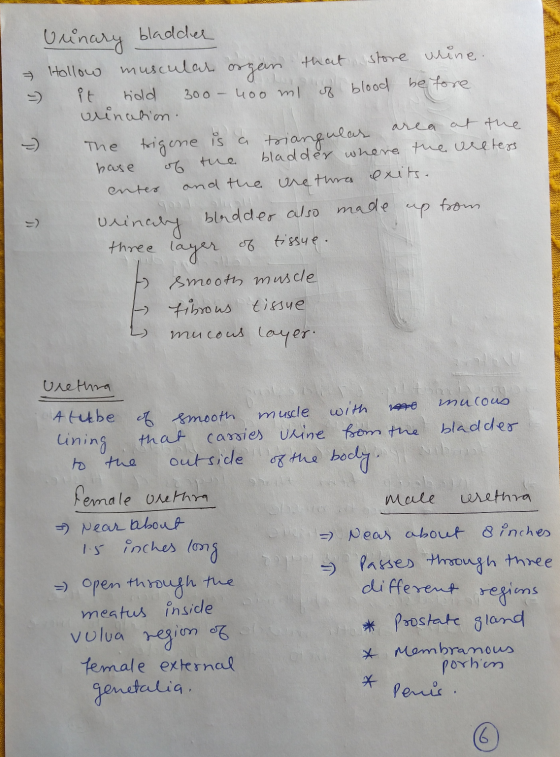 Urinary bladder
⇒ Hollow muscular organ that store urine.
⇒ It hold 300 - 400 ml of blood before
urination.
⇒ The trigone is a triangular area at the
base of the bladder where the ureters
enter and the urethra exits.
⇒ Urinary blndder also made up from
three layer of tissue.
↳ smooth muscle
↳ fibrous tissue
↳ mucous layer.
Urethra
A tube of smooth muscle with mucous
lining that carries urine from the bladder
to the outside of the body.
Female urethra
⇒ Near about
1.5 inches long
⇒ Open through the
meatus inside
vulva region of
female external
genetalia.
Male urethra
⇒ Near about 8 inches
⇒ Passes through three
different regions
* Prostate gland
* Membranous
portion
* Penis.
6